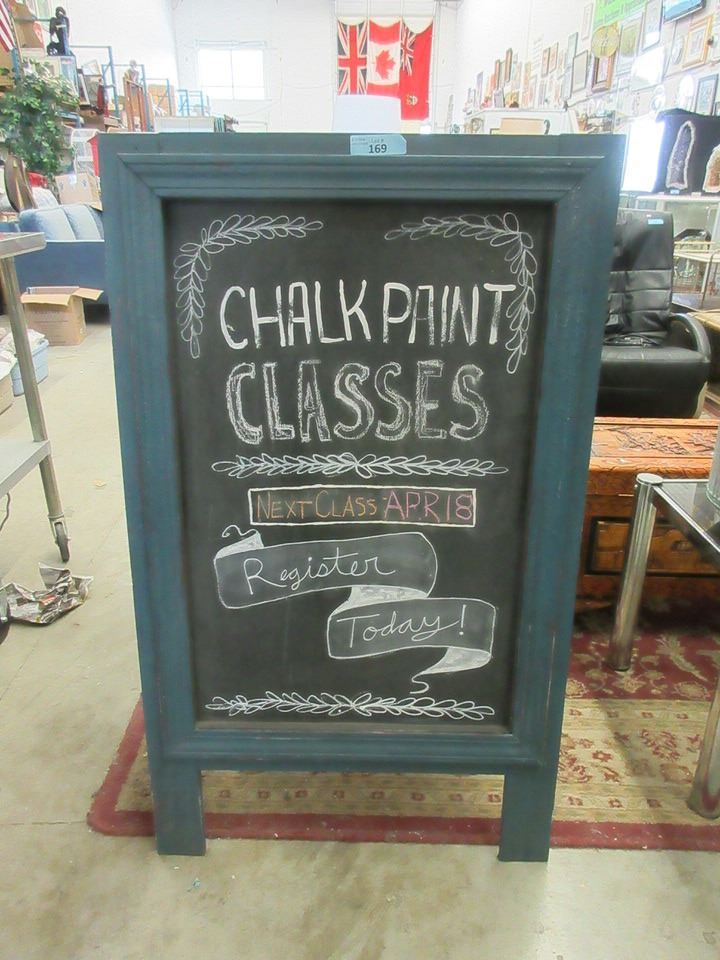 Lot #
169
CHALK PAINT
CLASSES
NEXT CLASS APR 18
Register
Today!